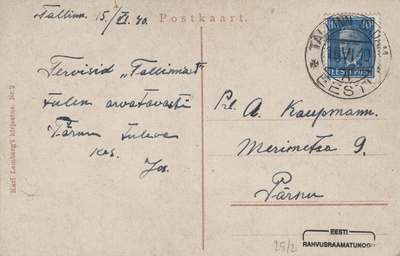 Tallinn. 15/VI. 40.
Postkaart.
Tervisid „Tallinnast
tulen arvatavasti
Pärnu tuleva
kes.
Jos.
Prl. A. Kaupmann.
Merimetsa 9.
Pärnu
TALLINN
EESTI
EESTI POST
Karl Lemberg'i kirjastus. Nr. 2
25/2
EESTI
RAHVUSRAAMATUKOGU